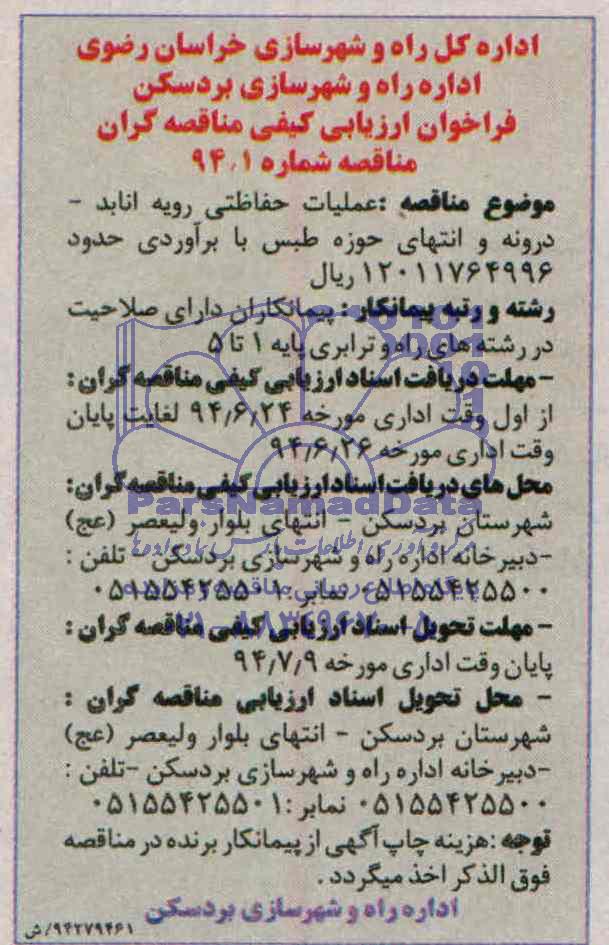 اداره کل راه و شهرسازی خراسان رضوی
اداره راه و شهرسازی بردسکن
فراخوان ارزیابی کیفی مناقصه گران
مناقصه شماره ۹۴،۱
موضوع مناقصه :عملیات حفاظتی رویه انابد -
درونه و انتهای حوزه طبس با برآوردی حدود
۱۲۰۱۱۷۶۴۹۹۶ ریال
رشته و رتبه پیمانکار : پیمانکاران دارای صلاحیت
در رشته های راه و ترابری پایه ۱ تا ۵
- مهلت دریافت اسناد ارزیابی کیفی مناقصه گران :
از اول وقت اداری مورخه ۹۴٫۶٫۲۴ لغایت پایان
وقت اداری مورخه ۹۴٫۶٫۲۶
محل های دریافت اسناد ارزیابی کیفی مناقصه گران:
ParsNamadData
شهرستان بردسکن - انتهای بلوار ولیعصر (عج)
-دبیرخانه اداره راه و شهرسازی بردسکن - تلفن :
۰۵۱۵۵۴۲۵۵۰۰ نمابر :۰۵۱۵۵۴۲۵۵۰۱
- مهلت تحویل اسناد ارزیابی کیفی مناقصه گران :
پایان وقت اداری مورخه ۹۴٫۷٫۹
- محل تحویل اسناد ارزیابی مناقصه گران :
شهرستان بردسکن - انتهای بلوار ولیعصر (عج)
-دبیرخانه اداره راه و شهرسازی بردسکن -تلفن :
۰۵۱۵۵۴۲۵۵۰۰ نمابر :۰۵۱۵۵۴۲۵۵۰۱
توجه :هزینه چاپ آگهی از پیمانکار برنده در مناقصه
فوق الذکر اخذ میگردد .
اداره راه و شهرسازی بردسکن
۹۴۲۷۹۴۶۱/ش